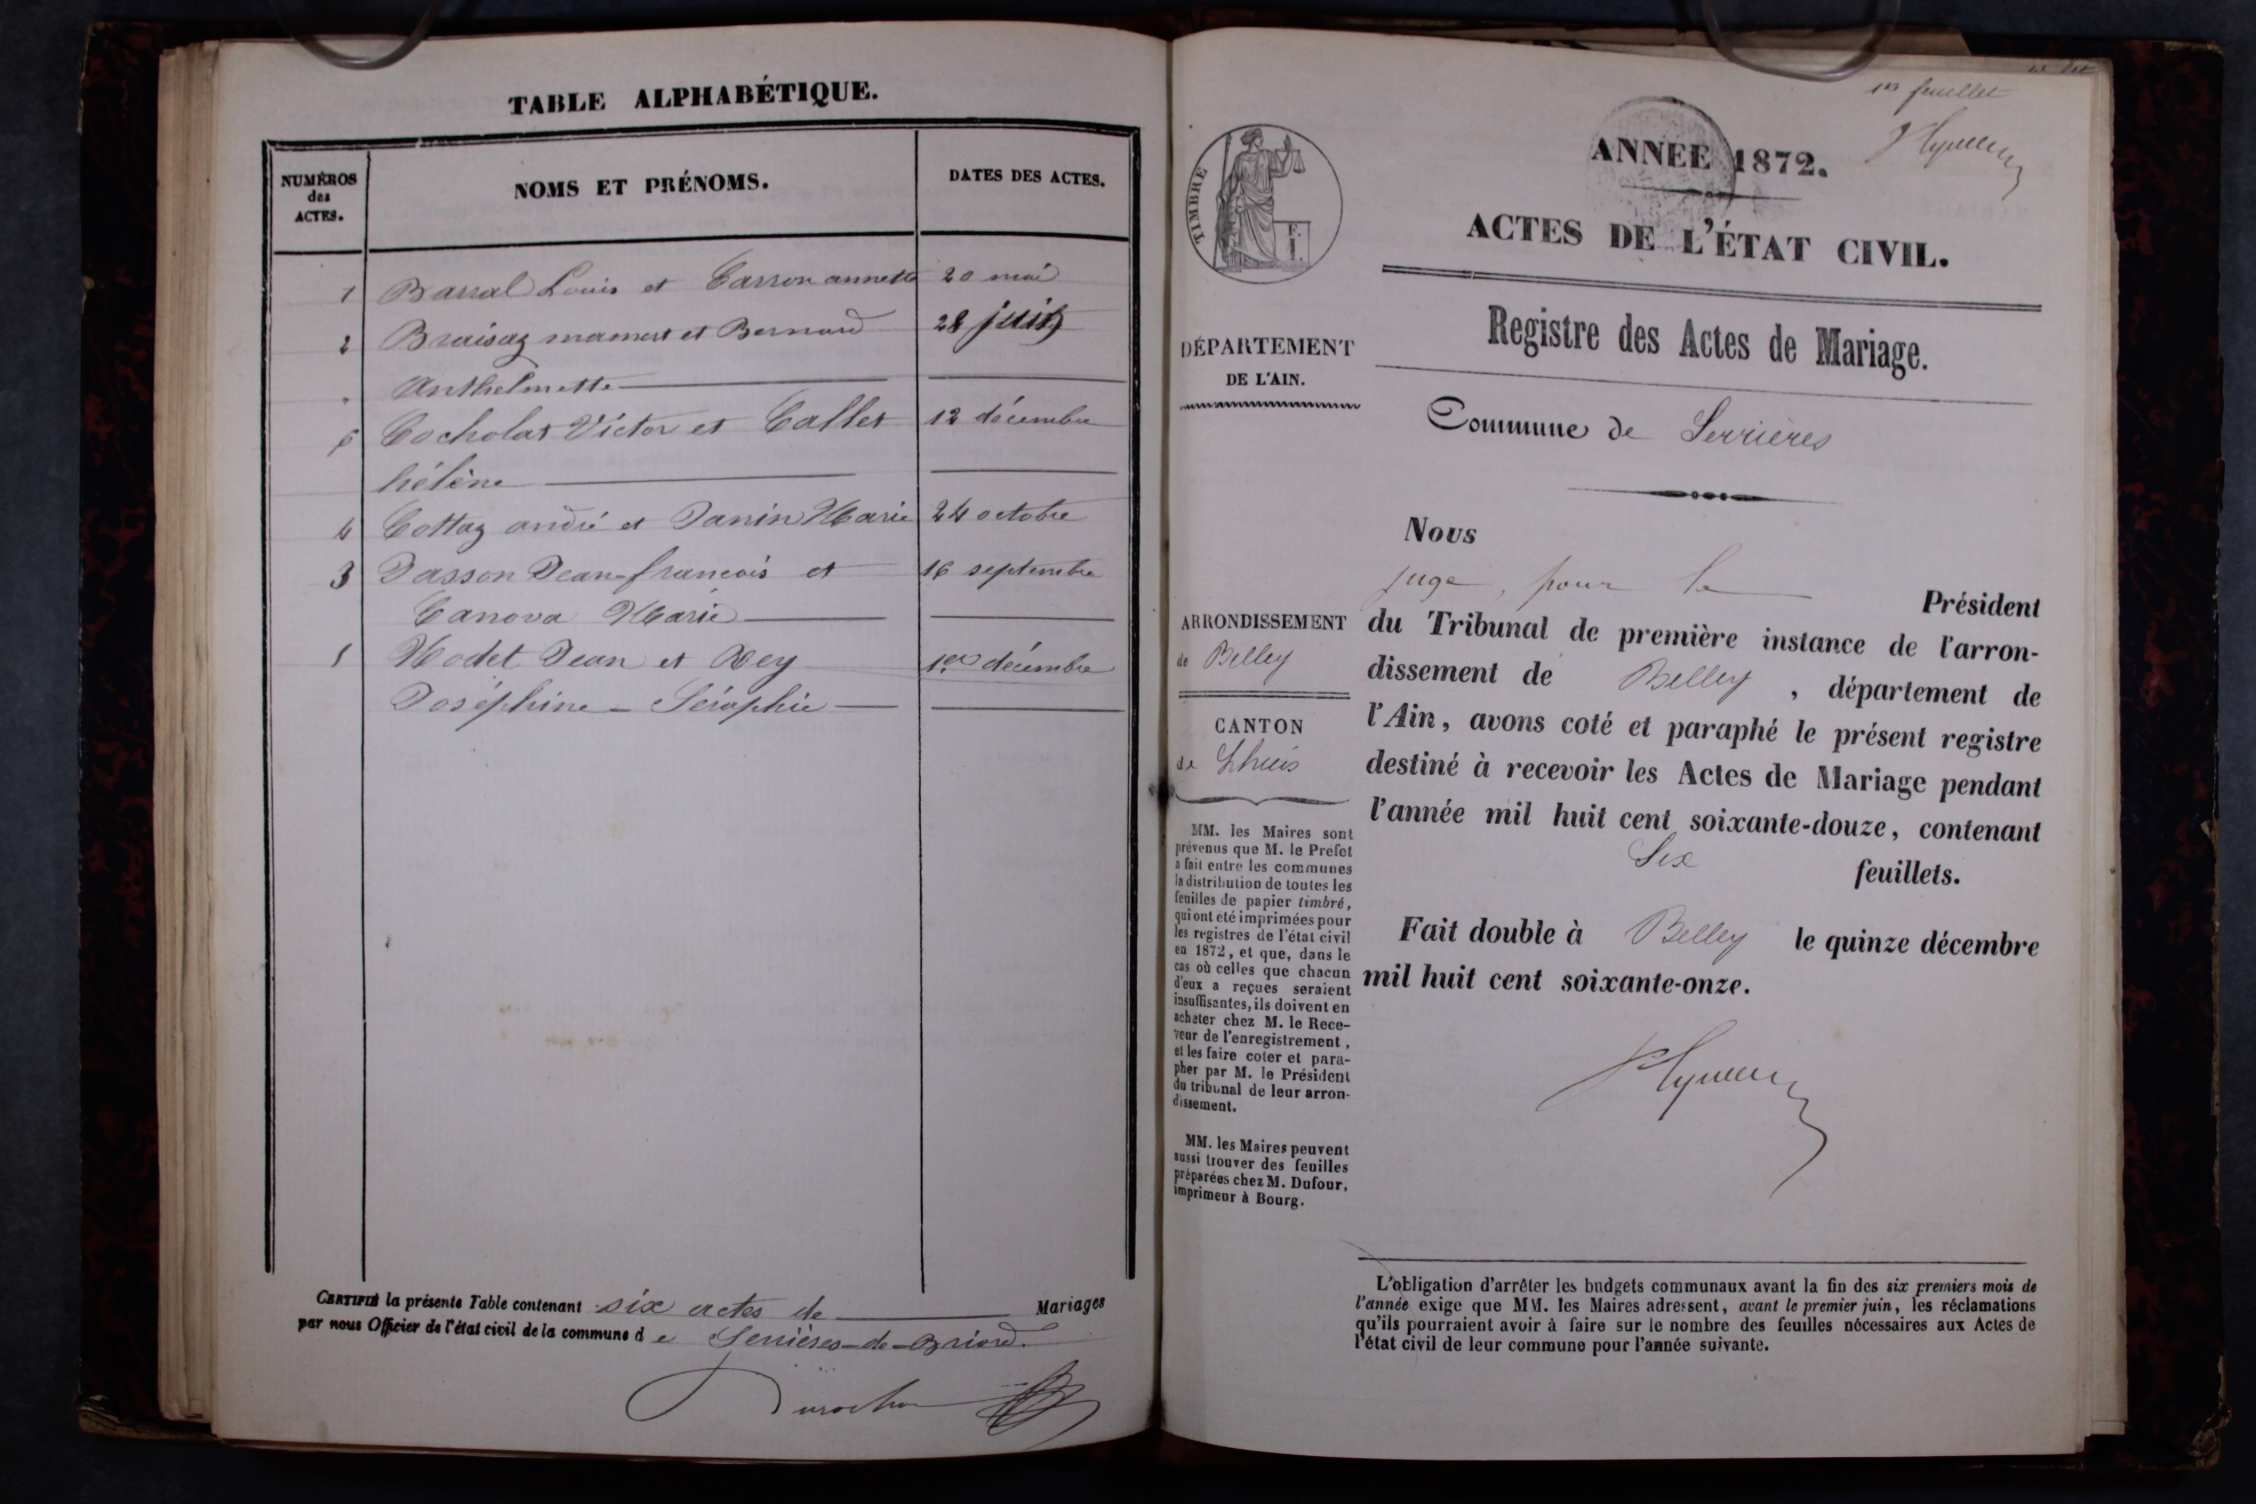 TABLE ALPHABÉTIQUE.
NUMÉROS des ACTES.
NOMS ET PRÉNOMS.
DATES DES ACTES.
1 Barral Louis et Carron annette 20 mai
2 Braisaz mamert et Bernard 28 juin
Anthelmette
6 Cocholat Victor et Callet 12 décembre
hélène
4 Cottaz andré et Janin Marie 24 octobre
3 Jasson Jean-francois et 16 septembre
Canova Marie
5 Modet Jean et Rey 1er décembre
Joséphine - Séraphie
CERTIFIÉ la présente Table contenant six actes de Mariages
par nous Officier de l'état civil de la commune de Serrières-de-Briord.
1er feuillet
TIMBRE
ANNÉE 1872.
ACTES DE L'ÉTAT CIVIL.
Registre des Actes de Mariage.
DÉPARTEMENT
DE L'AIN.
Commune de Serrières
ARRONDISSEMENT
de Belley
CANTON
de Lhuis
MM. les Maires sont
prévenus que M. le Prefet
a fait entre les communes
la distribution de toutes les
feuilles de papier timbré,
qui ont eté imprimées pour
les registres de l'état civil
en 1872, et que, dans le
cas où celles que chacun
d'eux a reçues seraient
insuffisantes, ils doivent en
acheter chez M. le Rece-
veur de l'enregistrement,
et les faire coter et para-
pher par M. le Président
du tribunal de leur arron-
dissement.
MM. les Maires peuvent
aussi trouver des feuilles
préparées chez M. Dufour,
imprimeur à Bourg.
Nous
juge, pour le Président
du Tribunal de première instance de l'arron-
dissement de Belley, département de
l'Ain, avons coté et paraphé le présent registre
destiné à recevoir les Actes de Mariage pendant
l'année mil huit cent soixante-douze, contenant
Six feuillets.
Fait double à Belley le quinze décembre
mil huit cent soixante-onze.
L'obligation d'arrêter les budgets communaux avant la fin des six premiers mois de
l'année exige que MM. les Maires adressent, avant le premier juin, les réclamations
qu'ils pourraient avoir à faire sur le nombre des feuilles nécessaires aux Actes de
l'état civil de leur commune pour l'année suivante.